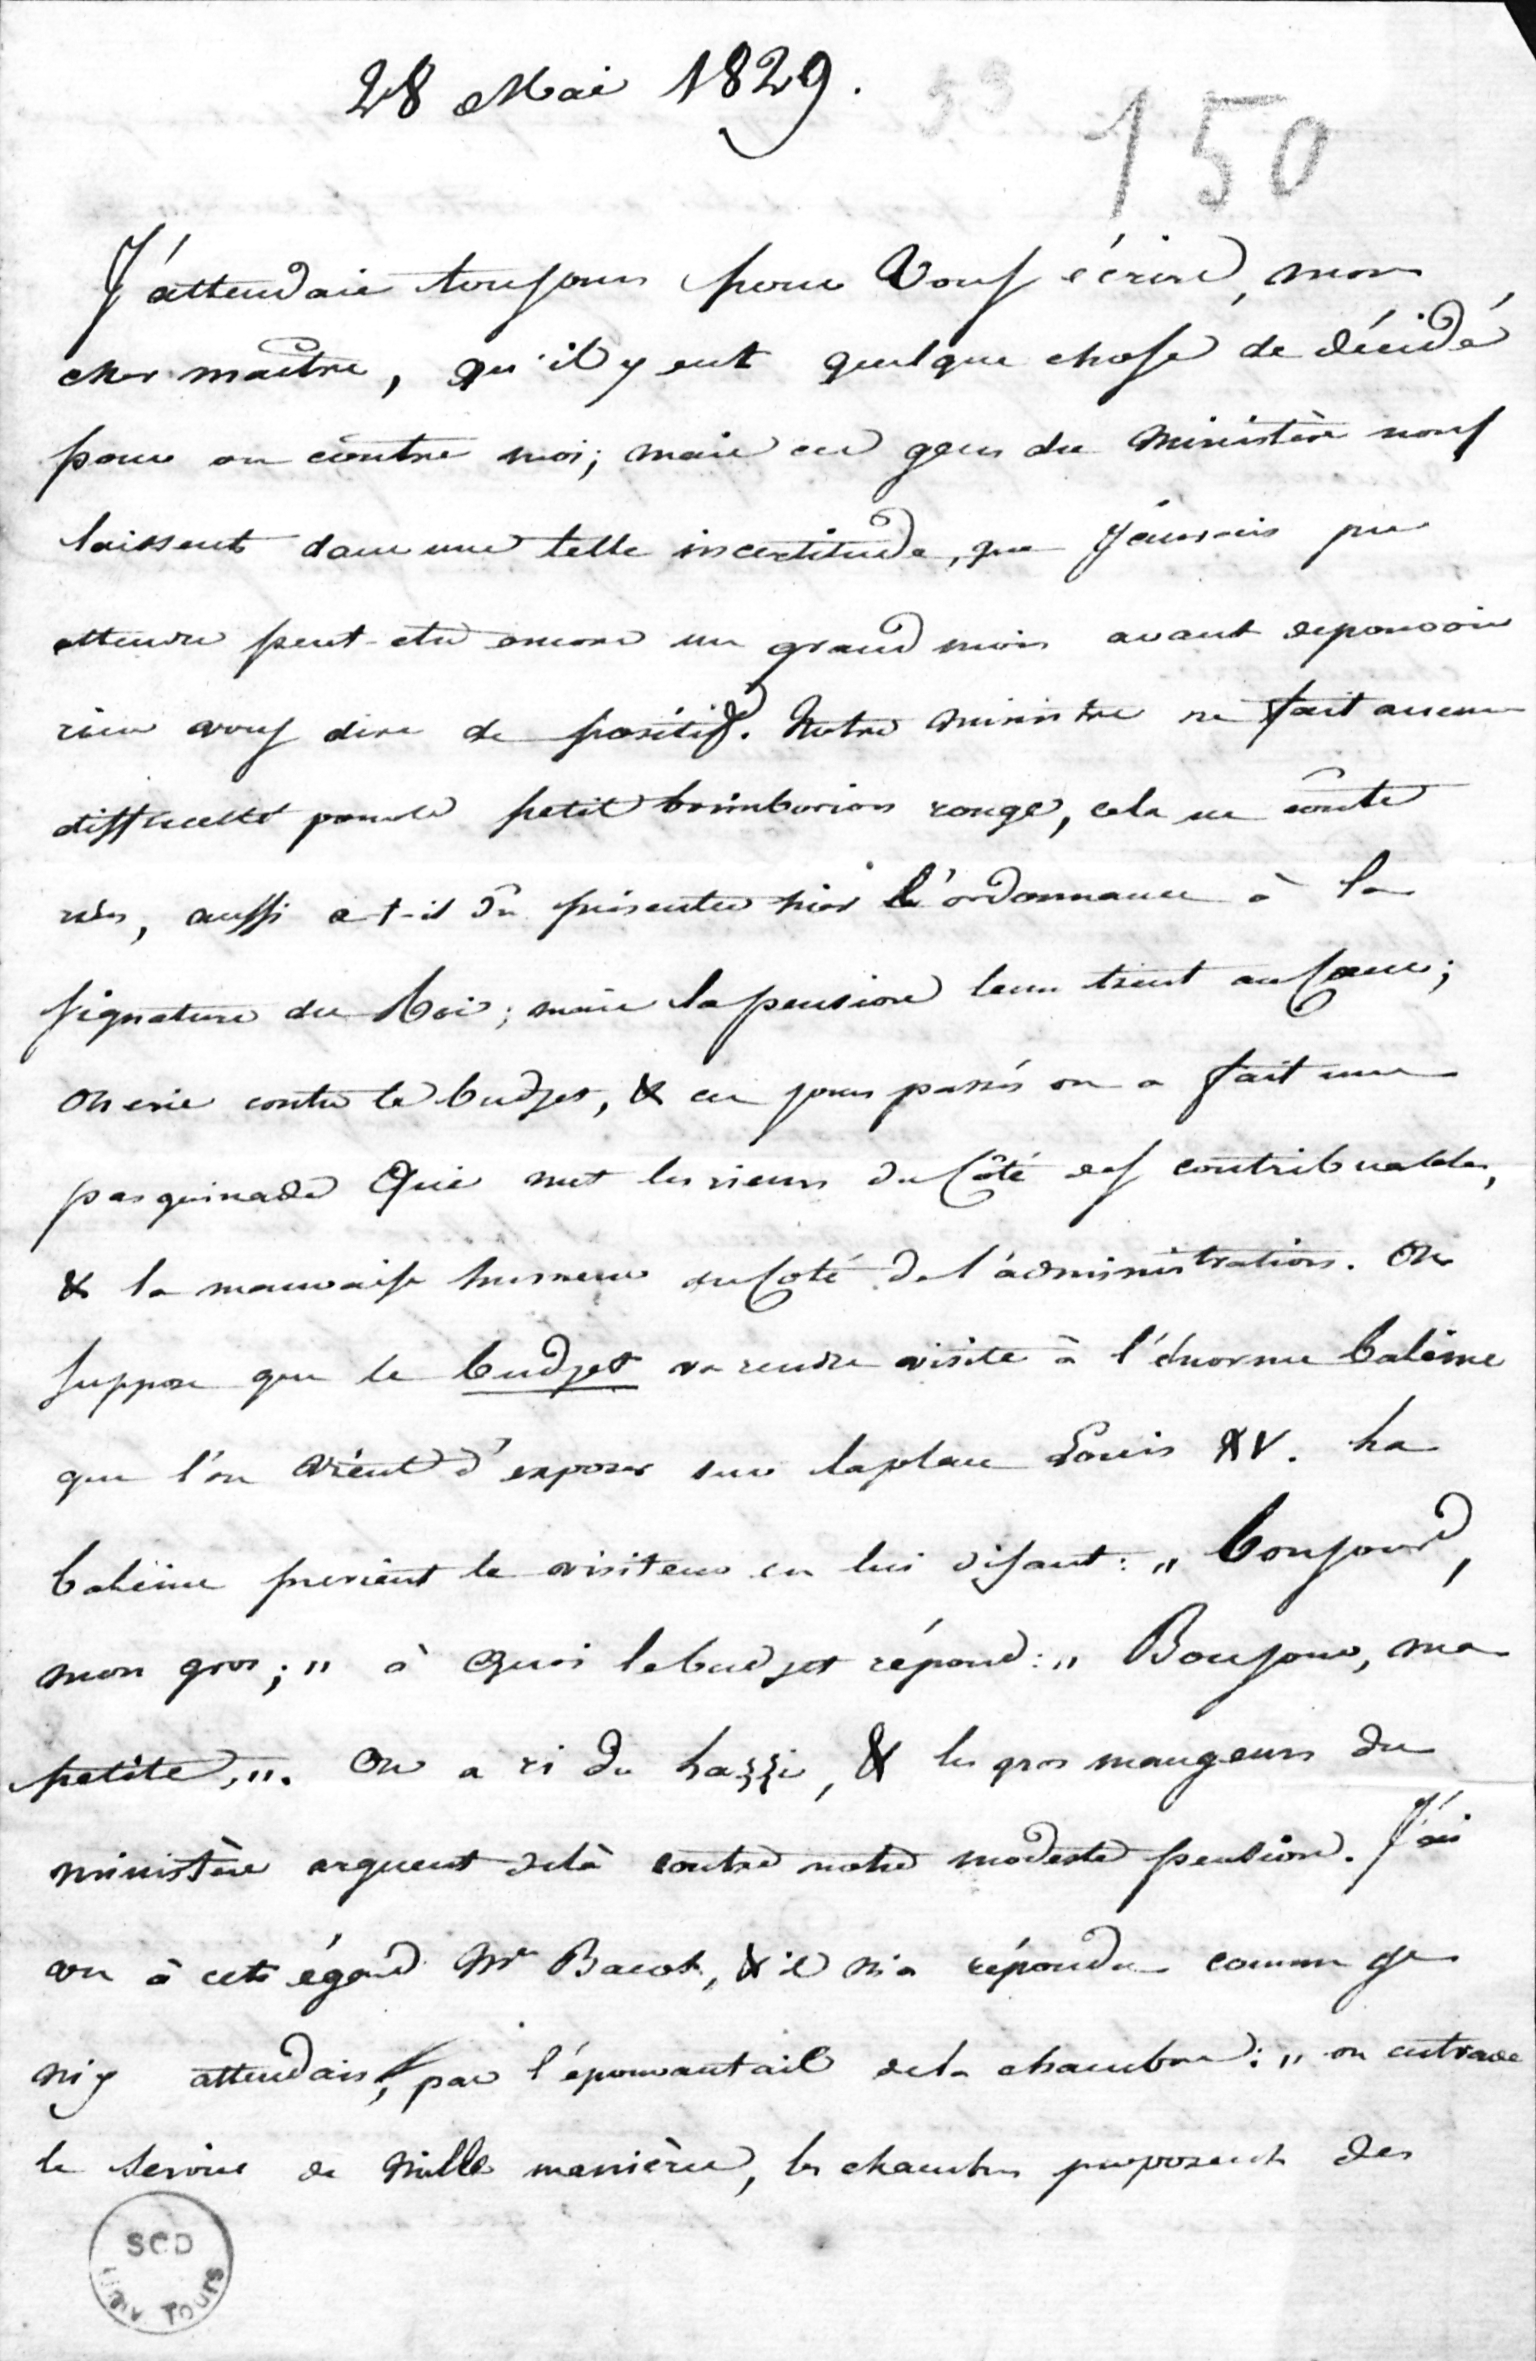 28 Mai 1829.
53
150
J'attendais toujours pour vous écrire, mon
cher maître, qu'il y eut quelque chose de décidé
pour ou contre moi; mais ces gens du Ministère nous
laissent dans une telle incertitude, que j'aurais pu
attendre peut-etre encore un grand mois avant de pouvoir
rien vous dire de positif. Notre ministre ne fait aucune
difficulté pour le petit brimborion rouge, cela ne coute
rien, aussi a-t-il dû présenter hier l'ordonnance à la
signature du Roi; mais la pension leur tient au Cœur;
On crie contre le budget, & ces jours passés on a fait une
pasquinade Qui met les rieurs du Côté des contribuables,
& la mauvaise humeur du Coté de l'administration. On
suppose que le budget va rendre visite à l'énorme baleine
que l'on vient d'exposer sur la place Louis XV. La
baleine previent le visiteur en lui disant: „ bonjour,
mon gros; „ à quoi le budget répond: „ Bonjour, ma
petite, „. On a ri du lazzi, & les gros mangeurs du
ministère arguent delà contre notre modeste pension. J'ai
vu à cet égard Mr Bacot, & il m'a répondu comme je
m'y attendais, par l'épouvantail de la chambre: „ on entrave
le service de mille manières, les chambres proposent des
SCD
Univ Tours